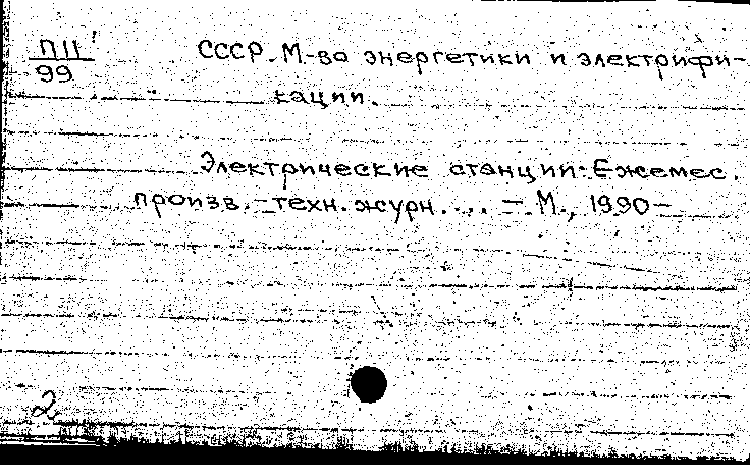 П11
99
СССР. М-во энергетики и электрифи-
кации.
Электрические станции: Ежемес.
произв.-техн. журн. ... – М., 1990–
2